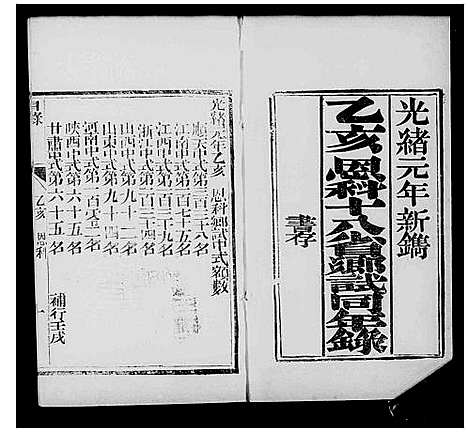 光緒元年新鐫
乙亥恩科十八省鄉試同年錄
書存
光緒元年乙亥 恩科鄉試中式額數
順天中式第二百三十八名
江南中式第一百七十五名
江西中式第一百三十九名
浙江中式第一百三十四名
山西中式第九十二名
山東中式第九十四名
河南中式第一百零二名
陝西中式第六十五名
甘肅中式第六十五名
補行壬戌
目錄
乙亥 恩科
一